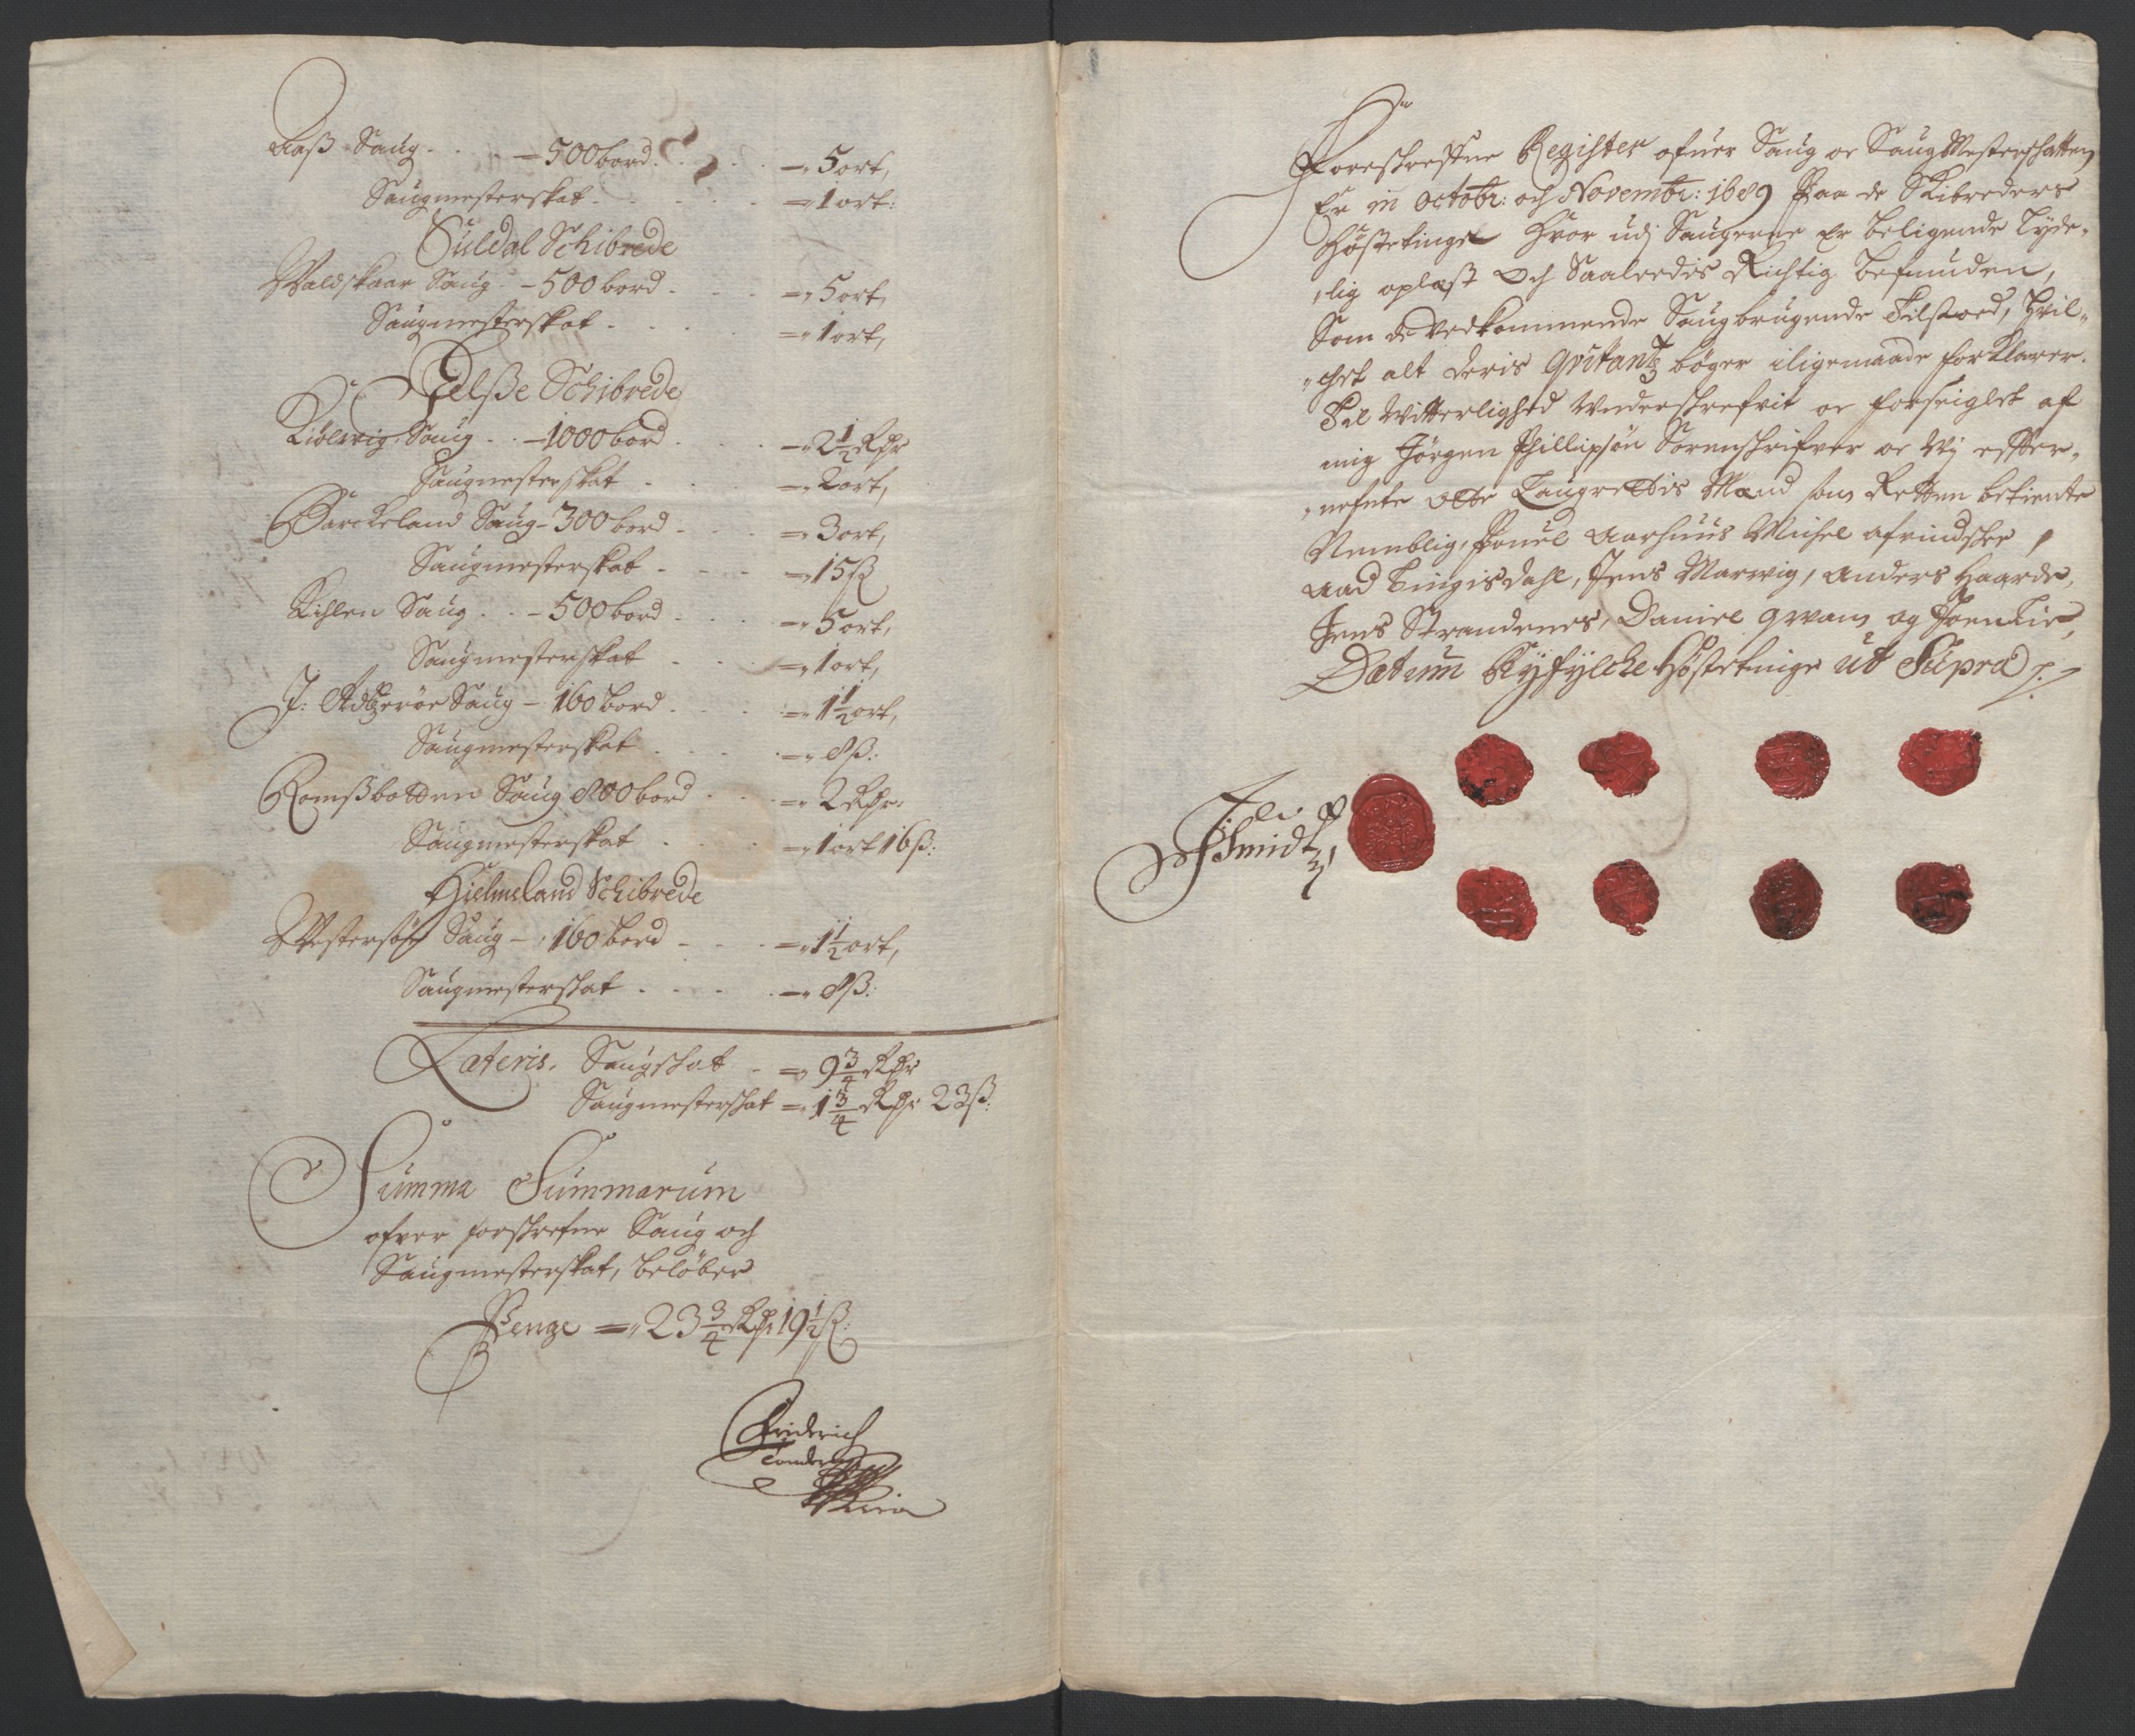 Aaß Saug - 500 bord - 5 ort,
Saugmesterskat - 1 ort:
Suldal Schibrede
Waldskaar Saug - 500 bord - 5 ort,
Saugmesterskat - 1 ort,
Jelße Schibrede
Kiölevig Saug - 1000 bord - 2½ Rdr
Saugmesterskat - 2 ort,
Barckeland Saug - 300 bord - 3 ort,
Saugmesterskat - 15 ß
Kihlen Saug - 500 bord - 5 ort,
Saugmesterskat - 1 ort,
J: Saug - 160 bord - 1½ ort,
Saugmesterskat - 8 ß:
Romßbotten Saug 800 bord - 2 Rdr:
Saugmesterskat - 1 ort 16 ß:
Hielmeland Schibrede
Saug - 160 bord - 1½ ort,
Saugmesterskat - 8 ß:
Lateris. Saugskat - 9¾ Rdr
Saugmesterskat - 1¾ Rdr 23 ß:
Summa Summarum
ofver forskrefne Saug och
Saugmesterskat, belöber
Penge - 23¾ Rdr 19½ ß:
Friderich
Foreskrefne Register ofuer Saug oc Saug Mesterskatten
Er in Octobr: och Novembr: 1689 Paa de Skibreders
Høsteting Hvor udj Saugerne Er beligende lyde-
lig oplæst Och Saaledis Richtig befunden,
Som de Vedkommende Saugbrugende Tilstoed, Hvil-
chet alt deris Qvitantz bøger iligemaade forklarer.
Til Witterlighed Underskrefvit oc forseiglet af
mig Jørgen Phillipsøn Sorenskrifver oc Wj effter-
nefnte Otte Laugrettis Mænd som Retten betiente
Nemblig, Pouel Aarhuus Michel
Aad Tingisdahl, Jens Marvig, Anders Haarde,
Jens Strandenes, Daniel og
Datum Ryfylche Høsteting ut Supra